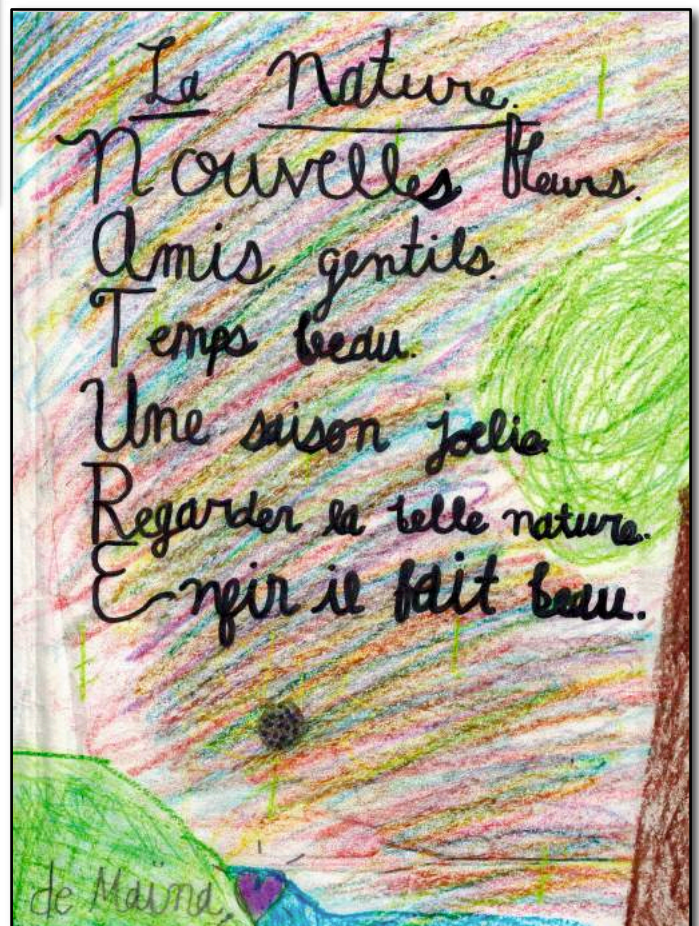 La Nature.
Nouvelles fleurs.
Amis gentils.
Temps beau.
Une saison jolie
Regarder la belle nature.
Enfin il fait beau.
de Maïna,